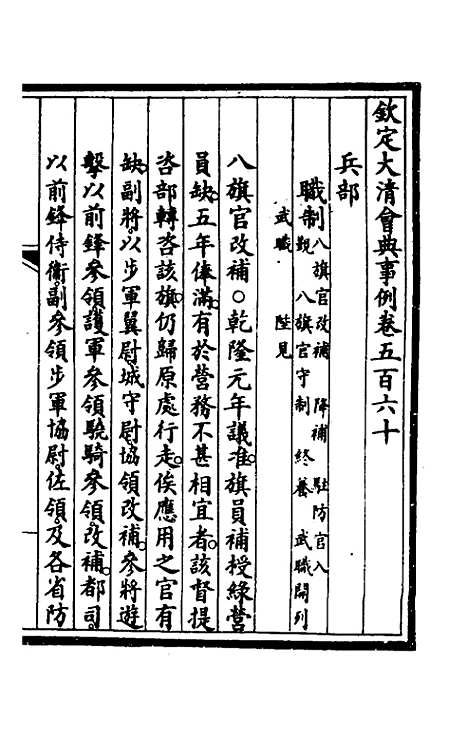 欽定大清會典事例卷五百六十
兵部
職制八旗官改補　降補　駐防官入
覲　八旗官守制　終養　武職開列
武職　陛見
八旗官改補○乾隆元年議准旗員補授綠營
員缺五年俸滿有於營務不甚相宜者該督提
咨部轉咨該旗仍歸原處行走俟應用之官有
缺副將以步軍翼尉城守尉協領改補參將遊
擊以前鋒參領護軍參領驍騎參領改補都司
以前鋒侍衛副參領步軍協尉佐領及各省防